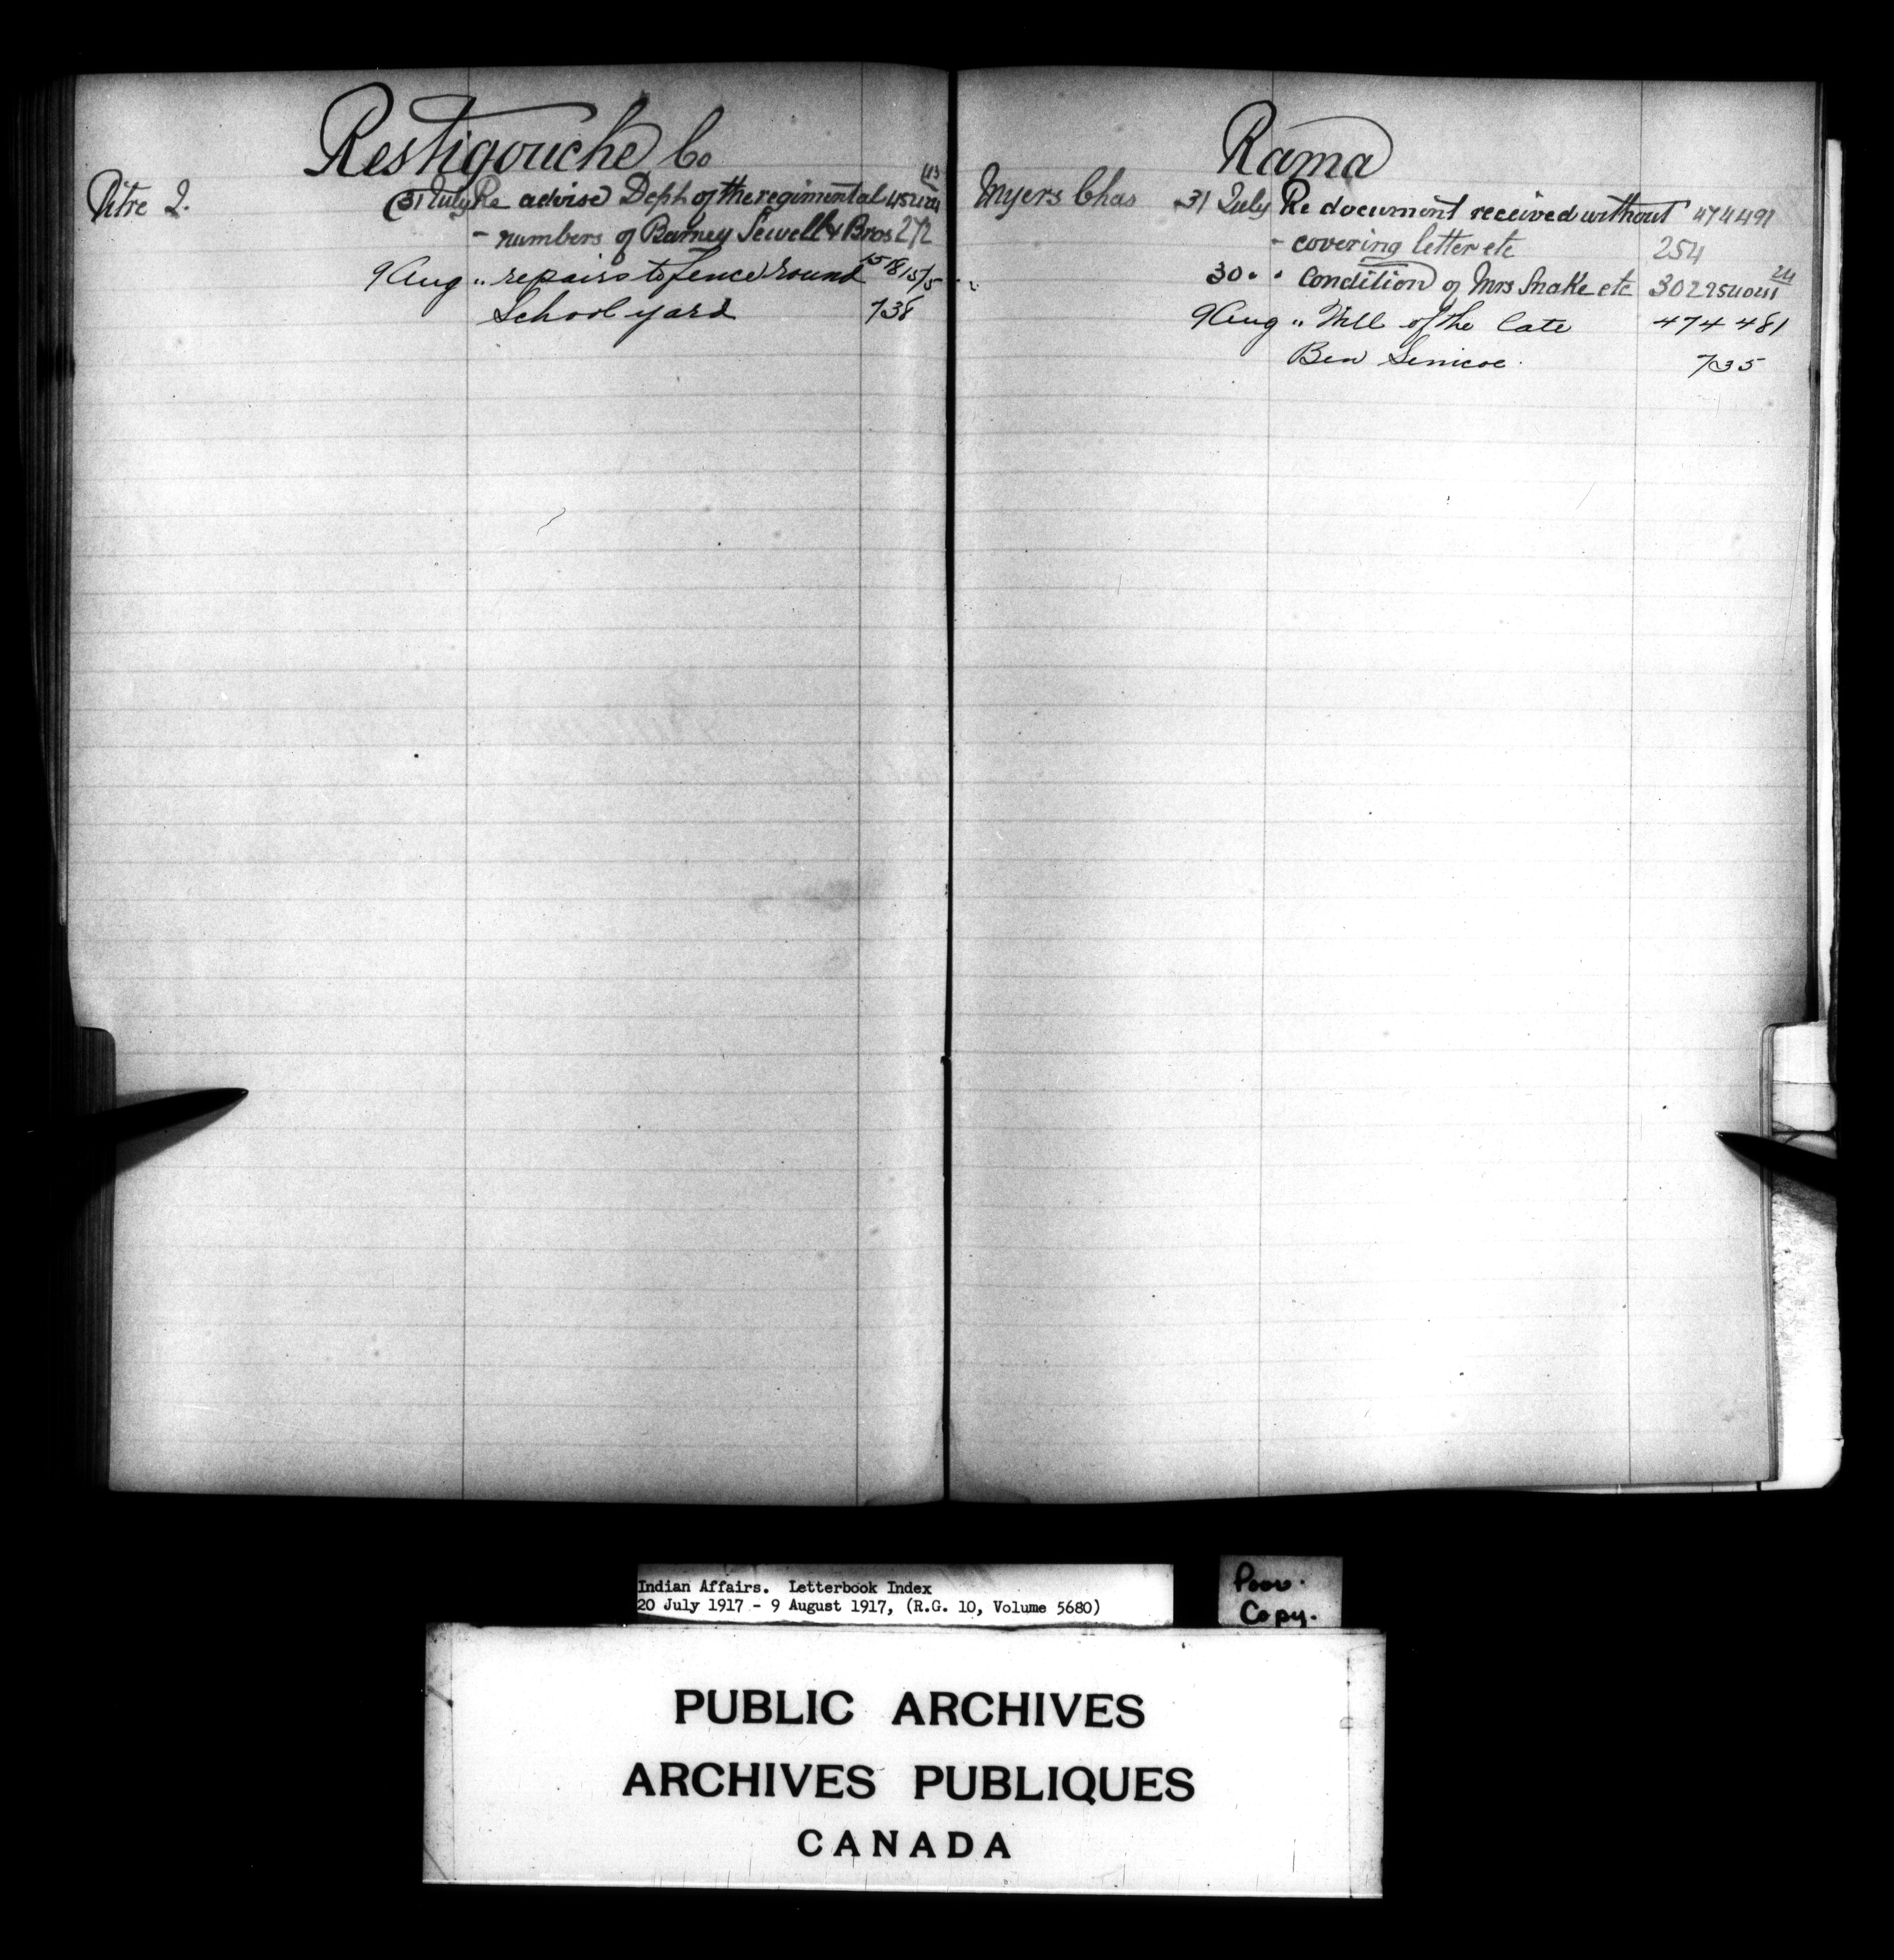 Restigouche Co
Pitre J. 31 July Re advise Dept. of the regimental
- numbers of Barney Sewell & Bros 272
9 Aug " repairs to fence round
School yard 738
Rama
Myers Chas 31 July Re document received without 474491
- covering letter etc 254
30 " " Condition of Mrs Snake etc 302
9 Aug " Will of the late 474 481
Ben 735
Indian Affairs. Letterbook Index
20 July 1917 - 9 August 1917, (R.G. 10, Volume 5680)
Poor.
Copy.
PUBLIC ARCHIVES
ARCHIVES PUBLIQUES
CANADA